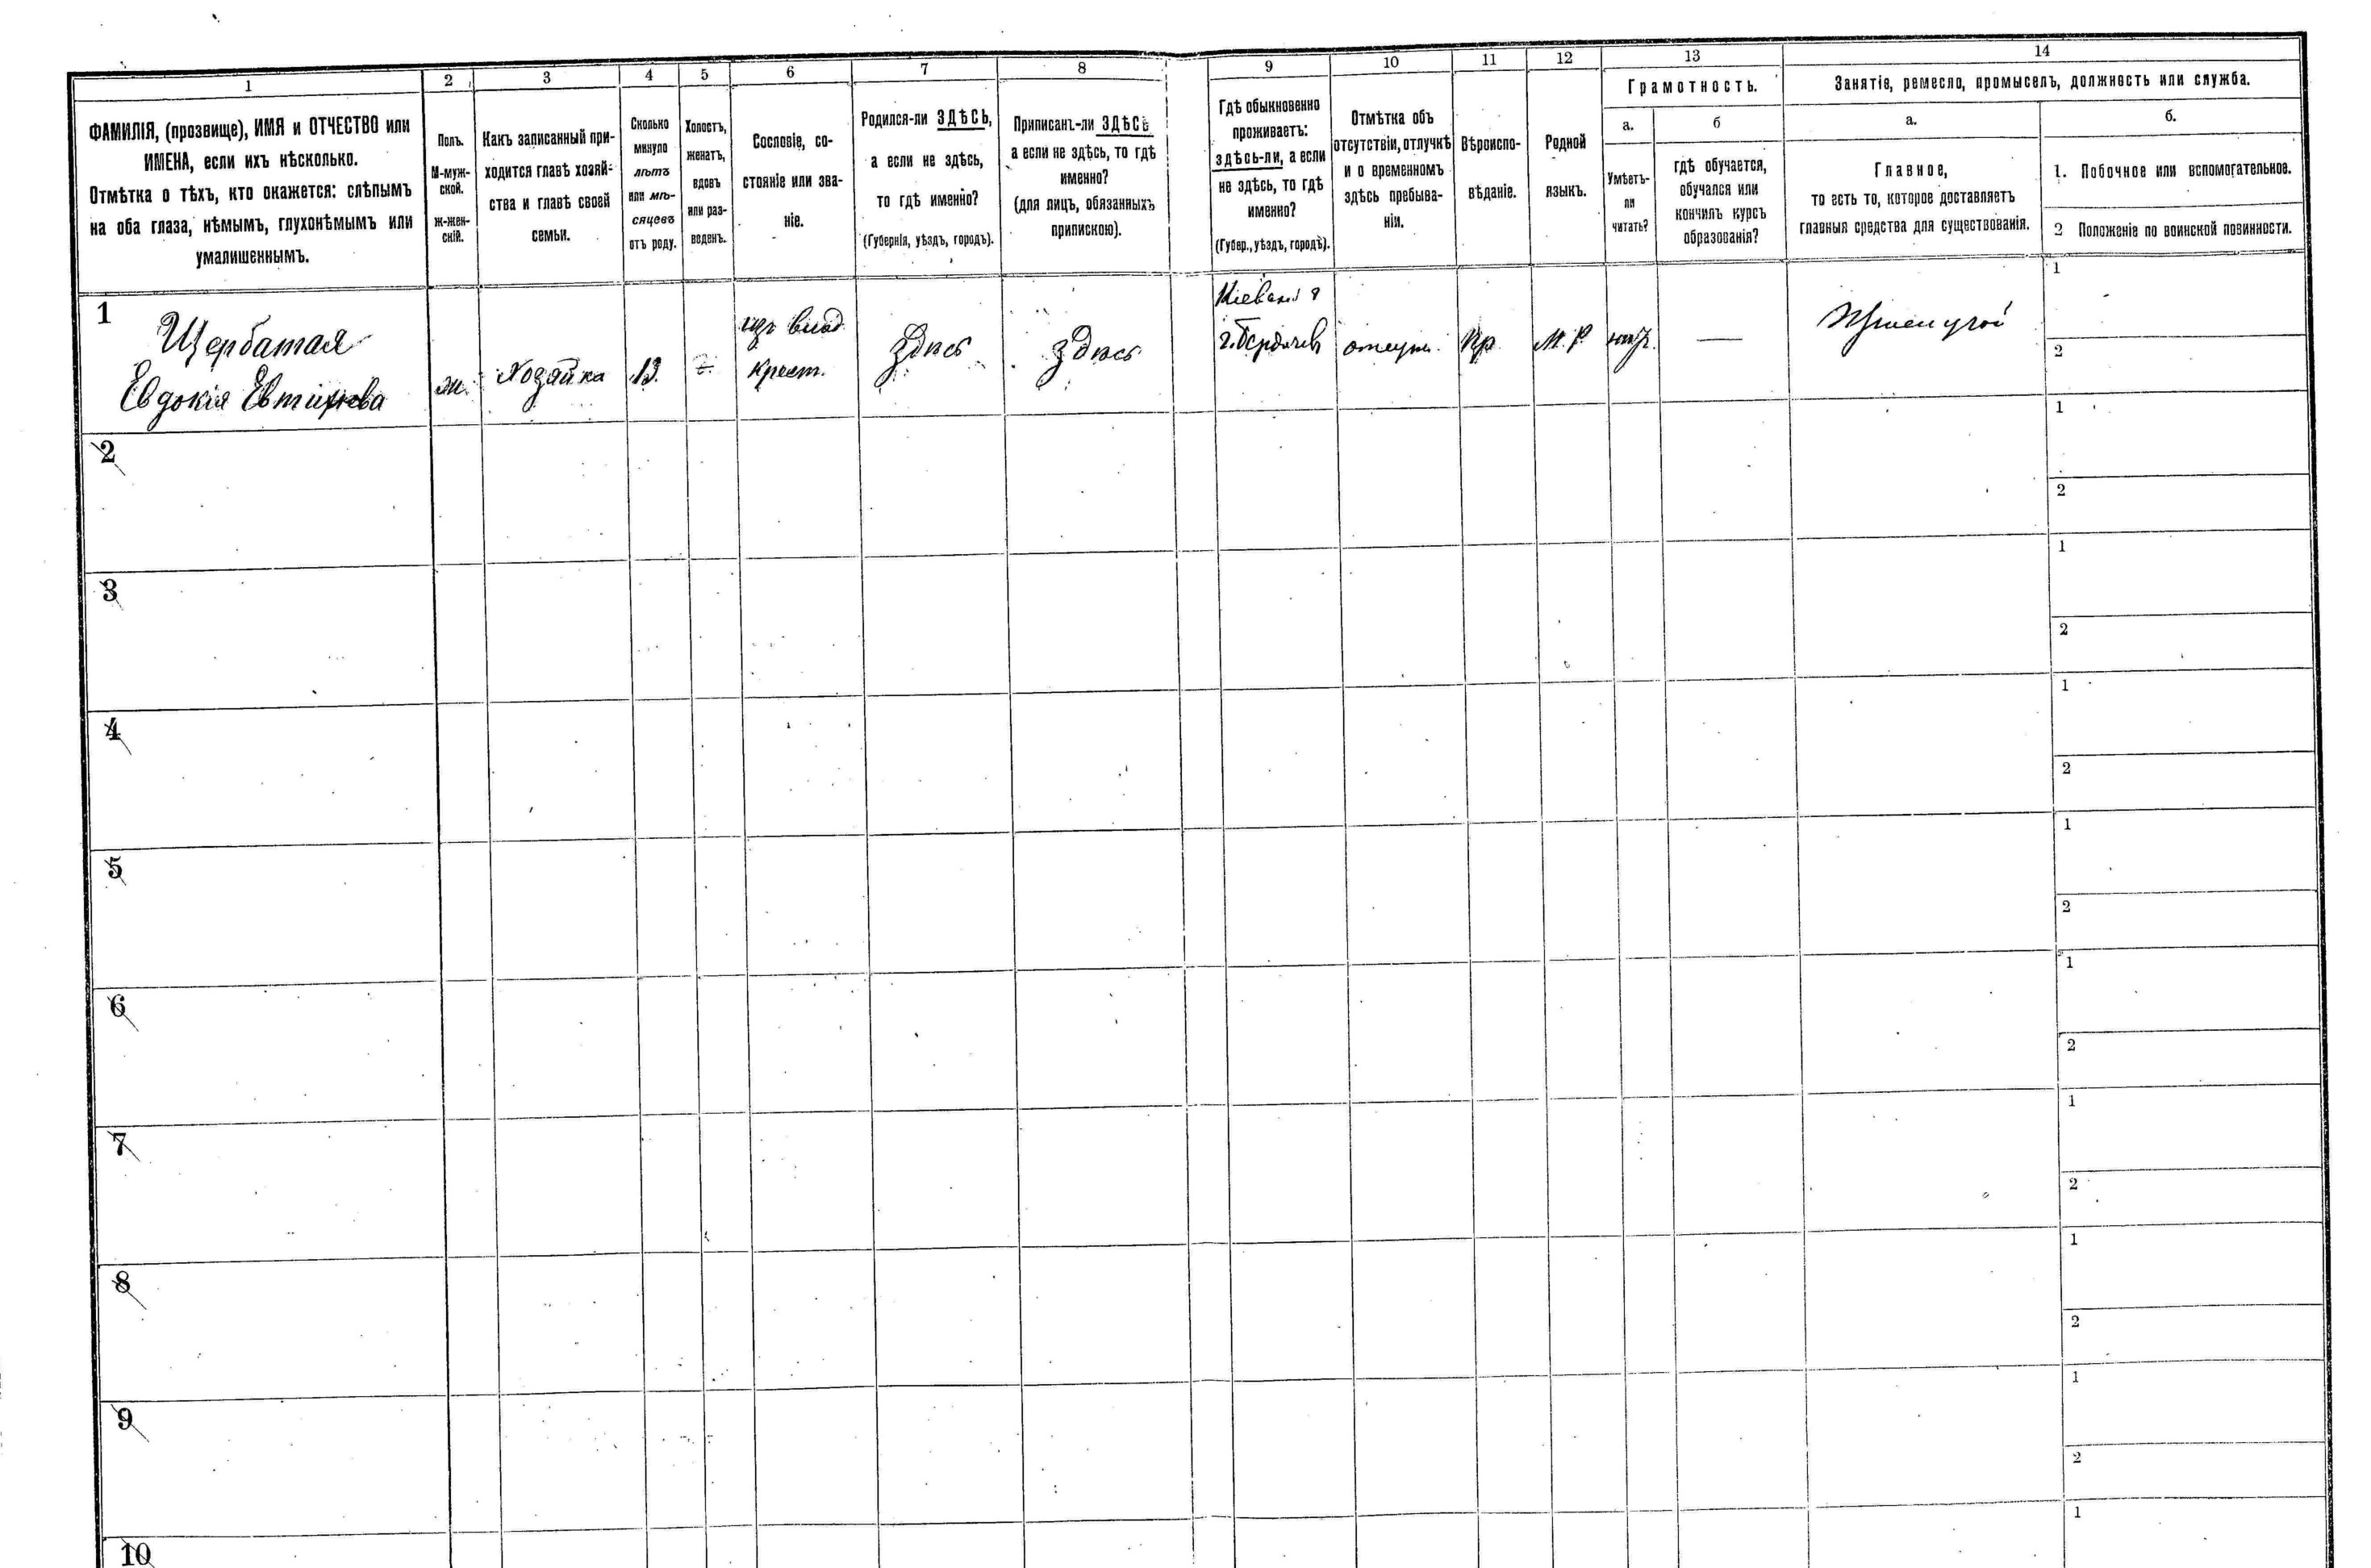 1 2 3 4 5 6 7 8 9 10 11 12 13 14
ФАМИЛІЯ, (прозвище), ИМЯ и ОТЧЕСТВО или
ИМЕНА, если ихъ нѣсколько.
Отмѣтка о тѣхъ, кто окажется: слѣпымъ
на оба глаза, нѣмымъ, глухонѣмымъ или
умалишеннымъ.
Полъ.
М-муж-
ской.
ж-жен-
скій.
Какъ записанный при-
ходится главѣ хозяй-
ства и главѣ своей
семьи.
Сколько
минуло
лѣтъ
или мѣ-
сяцевъ
отъ роду.
Холостъ,
женатъ,
вдовъ
или раз-
веденъ.
Сословіе, со-
стояніе или зва-
ніе.
Родился-ли ЗДѢСЬ,
а если не здѣсь,
то гдѣ именно?
(Губернія, уѣздъ, городъ).
Приписанъ-ли ЗДѢСЬ
а если не здѣсь, то гдѣ
именно?
(для лицъ, обязанныхъ
припискою).
Гдѣ обыкновенно
проживаетъ:
здѣсь-ли, а если
не здѣсь, то гдѣ
именно?
(Губер., уѣздъ, городъ).
Отмѣтка объ
отсутствіи, отлучкѣ
и о временномъ
здѣсь пребыва-
ніи.
Вѣроиспо-
вѣданіе.
Родной
языкъ.
Грамотность.
а.
Умѣетъ-
ли
читать?
б
гдѣ обучается,
обучался или
кончилъ курсъ
образованія?
Занятіе, ремесло, промыселъ, должность или служба.
а.
Главное,
то есть то, которое доставляетъ
главныя средства для существованія.
б.
1. Побочное или вспомогательное.
2 Положеніе по воинской повинности.
1
Щербатая
Евдокія Евтихіева
ж.
Хозяйка
13.
изъ влад.
крест.
здѣсь
здѣсь
г. Бердичев
отсут.
Пр.
М. Р.
—
1
2
2
1
2
3
1
2
4
1
2
5
1
2
6
1
2
7
1
2
8
1
2
9
1
2
10
1